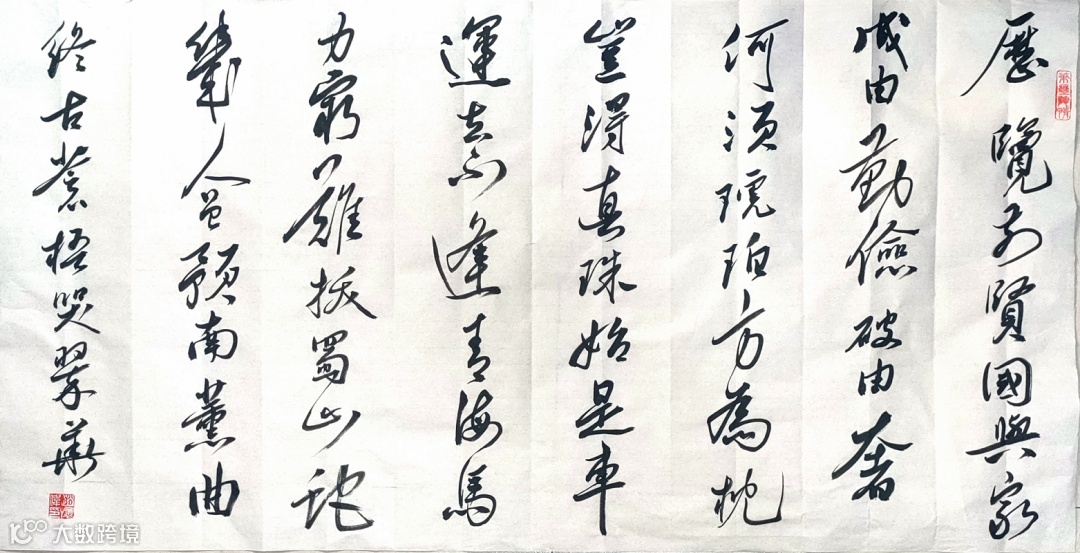 歷覽前賢國與家
成由勤儉破由奢
何須琥珀方為枕
豈得真珠始是車
運去不逢青海馬
力窮難拔蜀山蛇
幾人曾預南薰曲
終古蒼梧哭翠華
大数跨境